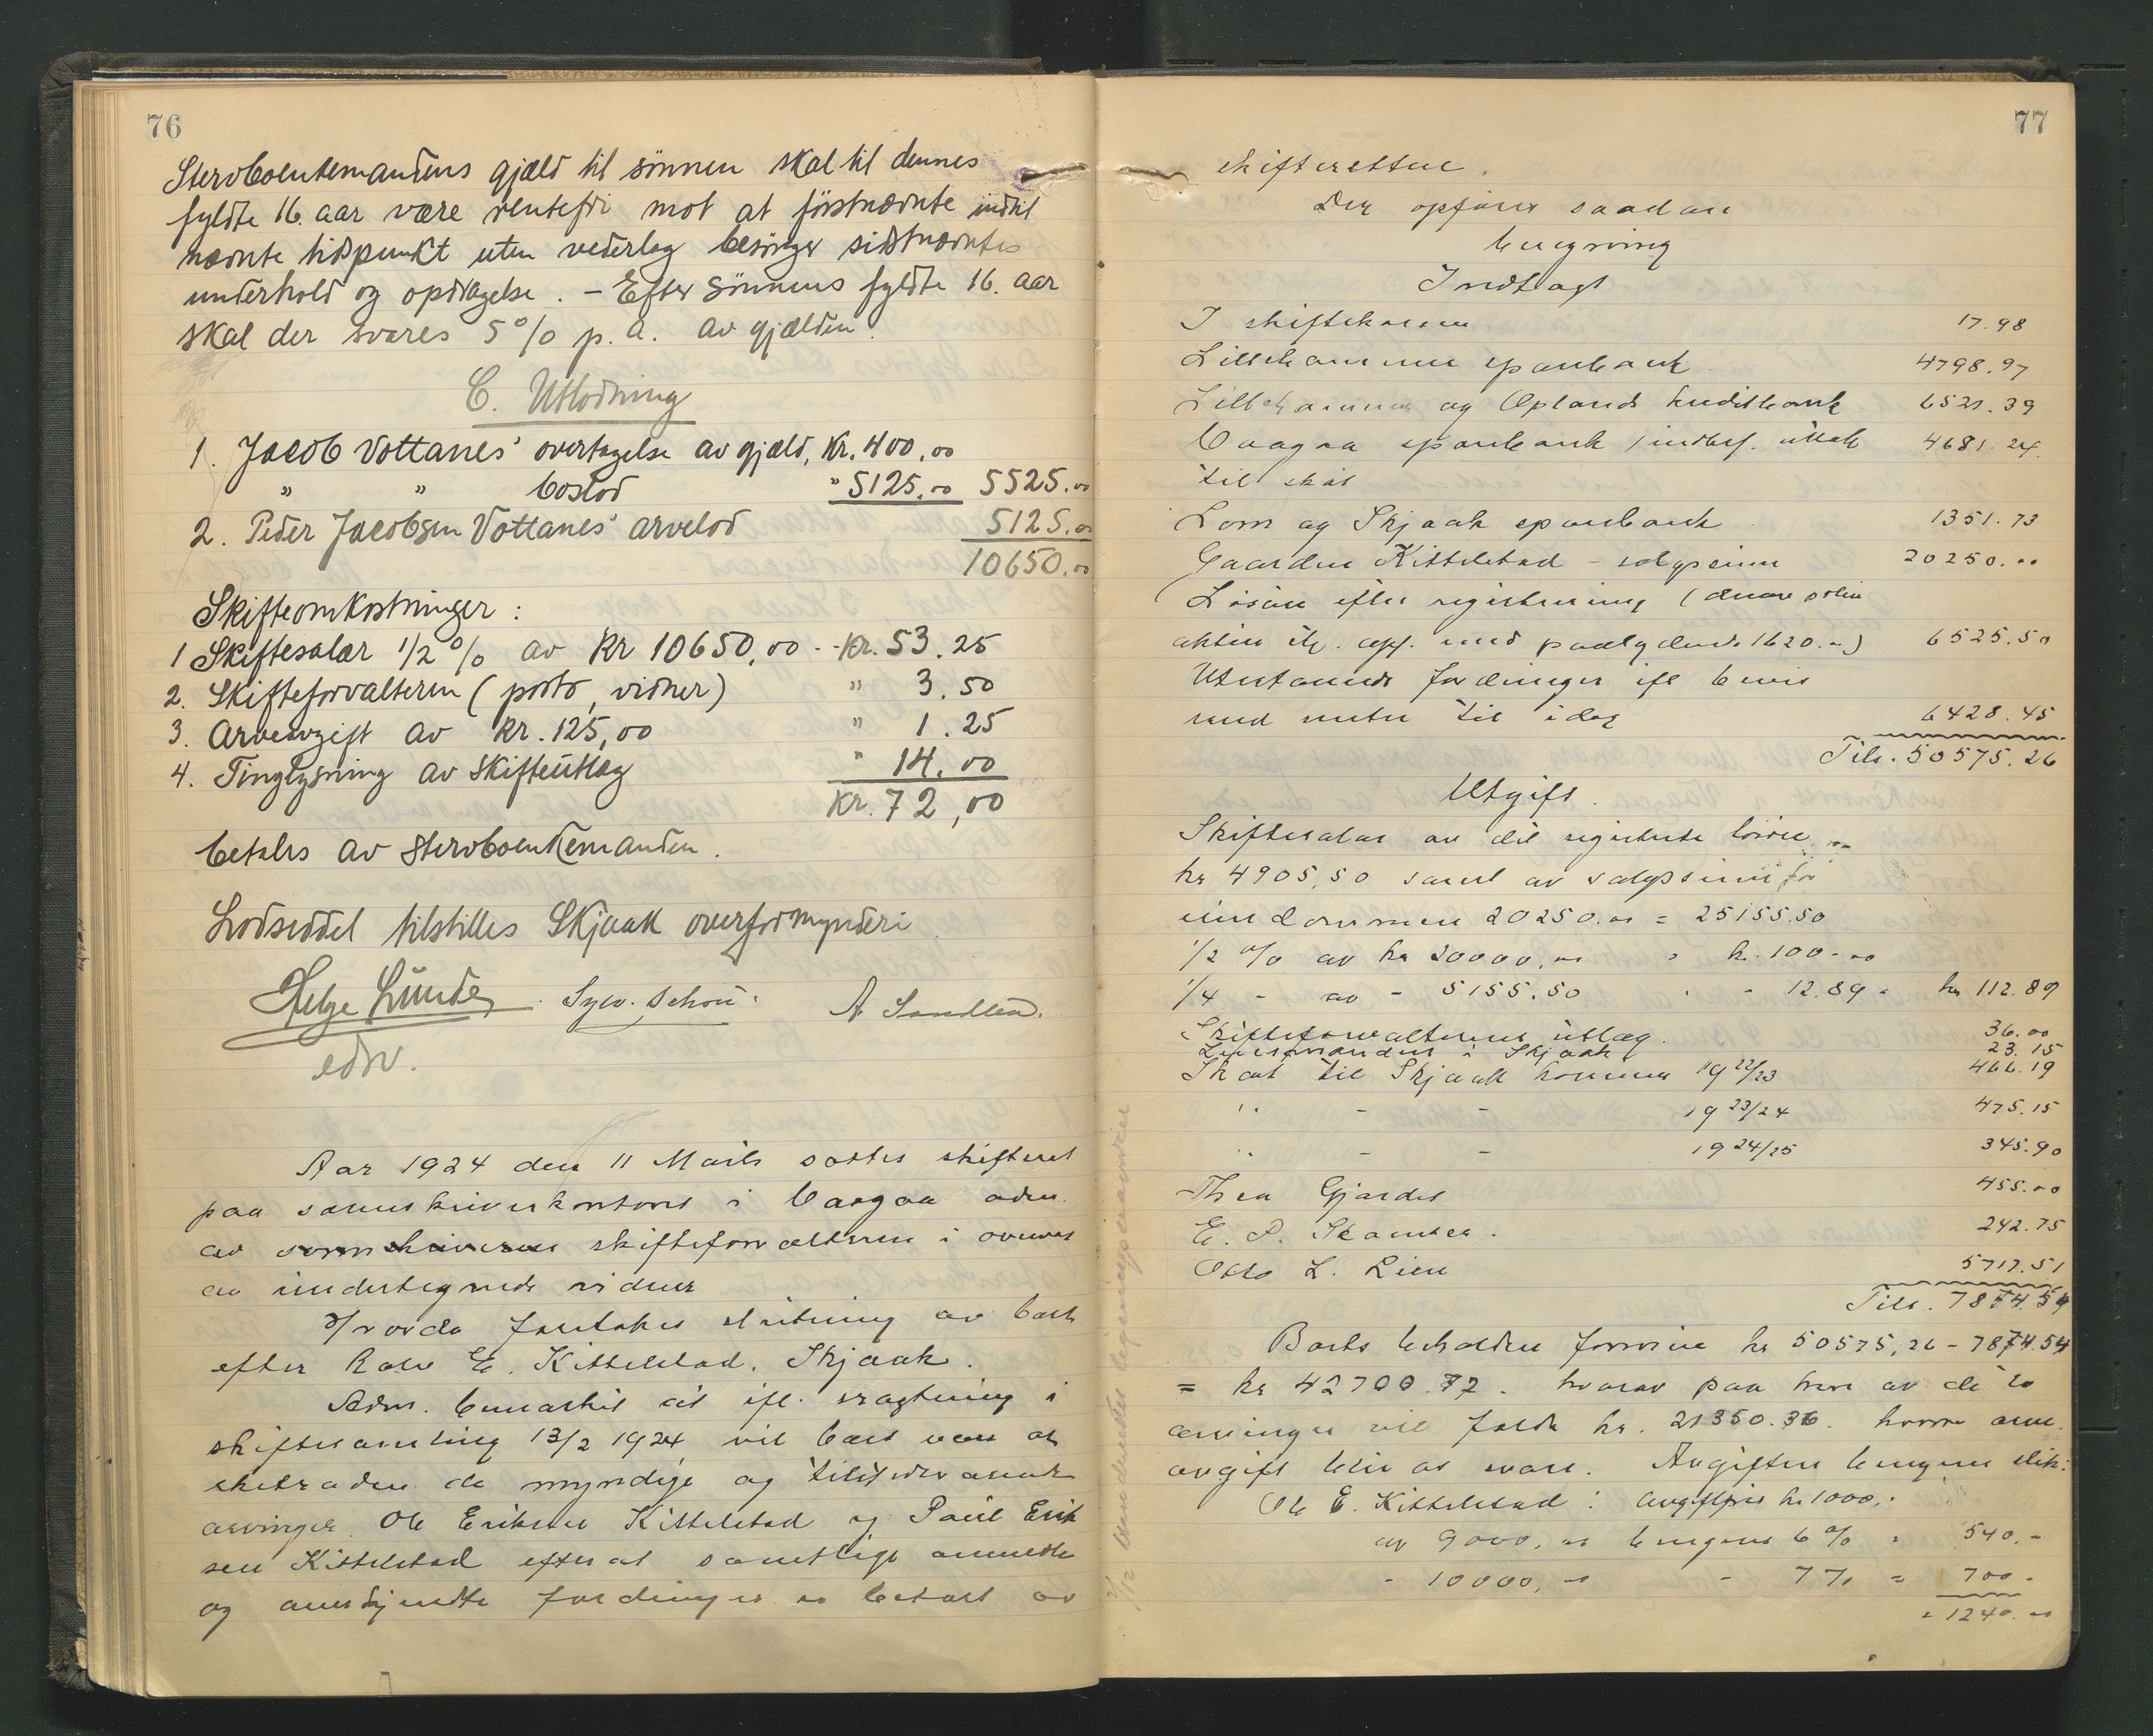 76
Stervboenkemandens gjæld til sønnen skal til dennes
fyldte 16. aar være rentefri mot at førstnævnte indtil
nævnte tidspunkt uten vederlag besørger sidstnævntes
underhold og opdragelse. – Efter sønnens fyldte 16. aar
skal der svares 5% p. a. av gjælden.
C. Utlodning
1. Jacob Vottanes' overtagelse av gjæld, Kr. 400.00
" " boslod " 5125.00 5525.00
2. Peder Jacobsen Vottanes' arvelod 5125.00
10650.00
Skifteomkostninger:
1 Skiftesalær 1/2 % av Kr 10650,00 - Kr. 53.25
2. Skifteforvalteren (porto, vidner) " 3.50
3. Arveavgift av kr. 125,00 " 1.25
4. Tinglysning av skifteutlæg " 14.00
Kr. 72,00
betales av stervboenkemanden.
Lodseddel tilstilles Skjaak overformynderi
Helge Lunde Sylv. Schou A Sandlien.
edsv.
Aar 1924 den 11 Marts sattes skifteret
paa sorenskriverkontoret i Vaagaa adm.
av sorenskriveren skifteforvalteren i overvær
av undertegnede vidner
Hvorda foretokes slutning av boet
efter Rolv E. Kittelstad, Skjaak.
Adm. bemærket at ifl. vragtning i
skiftesamling 13/2 1924 vil boet være at
ekstradere de myndige og tilstedeværende
arvinger Ole Eriksen Kittelstad og Paul Erik
sen Kittelstad efter at samtlige anmeldte
og anerkjendte fordringer er betalt av
77
skifteretten.
Der opføres saadan
beregning
Indtægt
I skiftekassen 17.98
Lillehammer sparebank 4798.97
Lillehammer og Oplands kreditbank 6521.39
Vaagaa sparebank (indbef. uttak 4681.24
til skat
Lom og Skjaak sparebank 1351.73
Gaarden Kittelstad - salgssum 20250.00
Løsøre efter registrering (derav
aktier opf. med paalydende 1620.-) 6525.50
Utestaaende fordringer ifl bevis
med renter til idag 6428.45
Tils. 50575.26
Utgift.
Skiftesalær av det registrerte løsøre
kr 4905,50 samt av salgssum for
eiendommen 20250.00 = 25155.50
1/2 % av kr 20000,00 = kr. 100.00
1/4 - av - 5155.50 - 12.89 = kr 112.89
Skifteforvalterens utlæg. 36.00
Lensmanden i Skjaak 23.15
Skat til Skjaak kommune 1922/23 466.19
" - - 1923/24 475.15
" - - 1924/25 345.90
Thea Gjardes 455.00
E. P. Skamsar. 242.75
Otto L. Lien 5717.51
Tils. 7874.54
Boets beholdne formue kr 50575,26 - 7874.54
= kr 42700.72. hvorav paa hver av de to
arvinger vil falde kr. 21350.36. hvorav arve
avgift blir at svare. Avgiften beregnes slik:
Ole E. Kittelstad: avgiftfrit kr 1000,-
av 9000,00 beregnes 6% = 540,-
- 10000,00 - 7% = 700-
= 1240.00